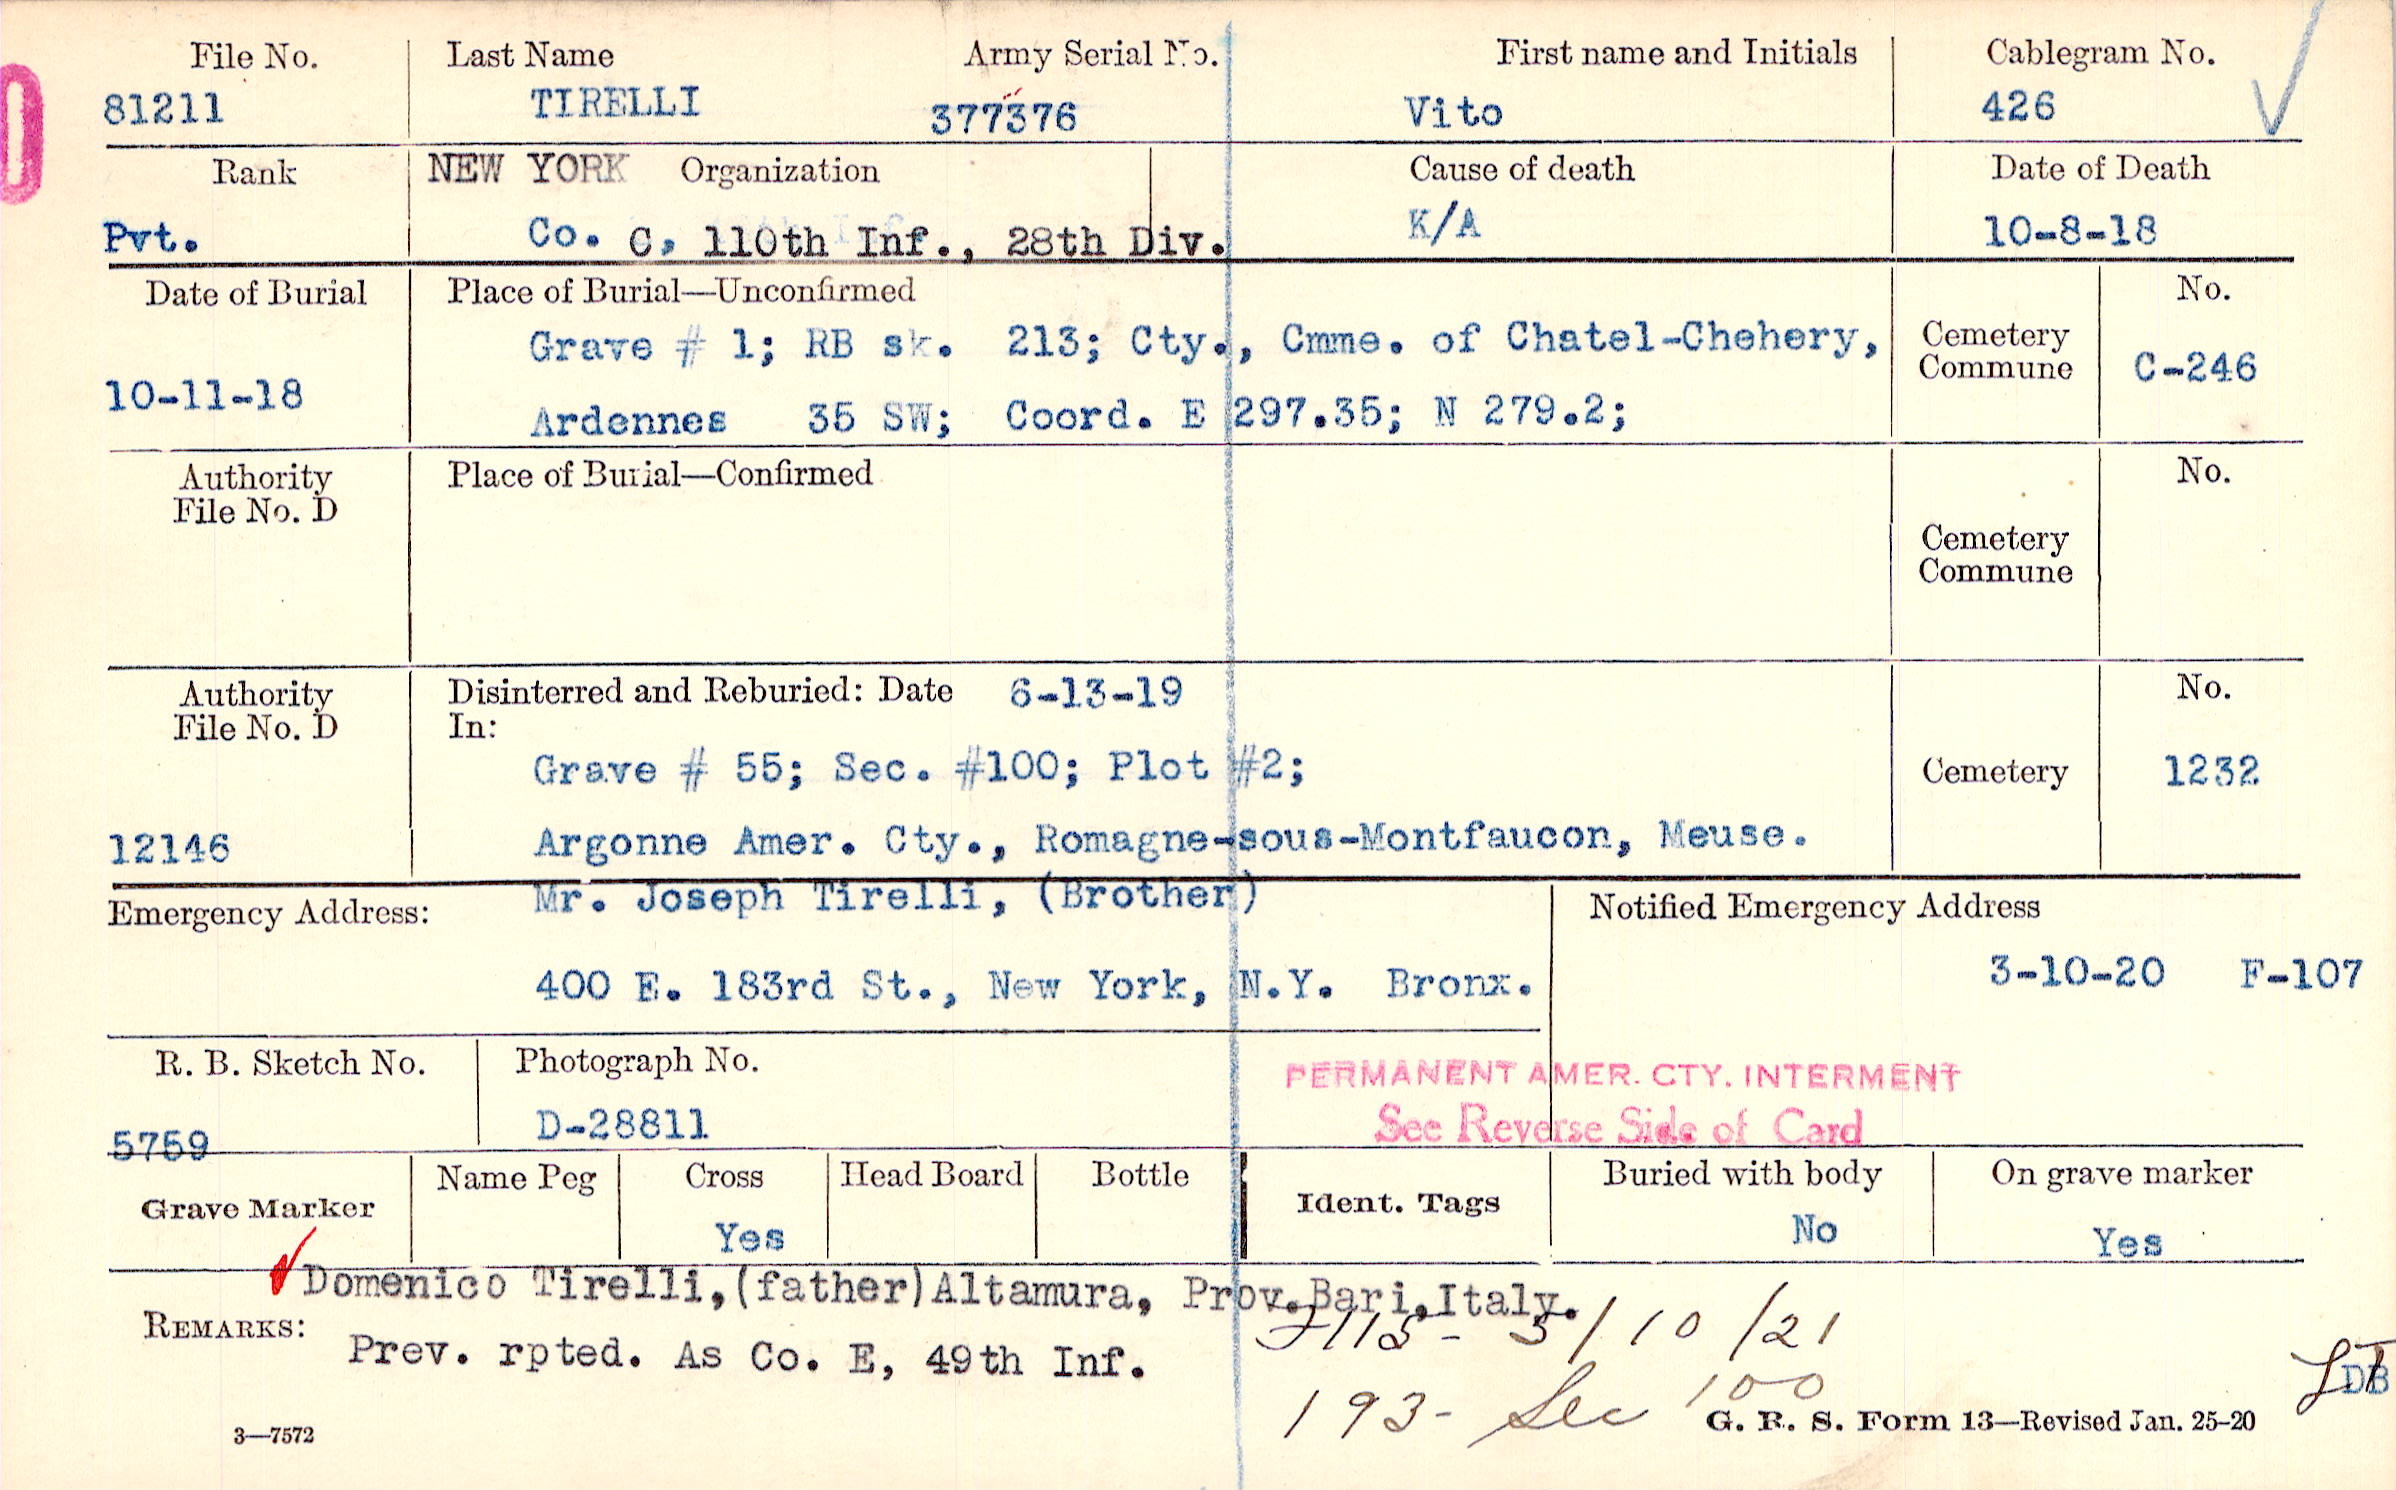 File No. Last Name Army Serial No. First name and Initials Cablegram No.
81211 TIRELLI 377376 Vito 426
Rank NEW YORK Organization Cause of death Date of Death
Pvt. Co. C, 110th Inf., 28th Div. K/A 10-8-18
Date of Burial Place of Burial—Unconfirmed No.
Grave # 1; RB sk. 213; Cty., Cmme. of Chatel-Chehery, Cemetery
Commune C-246
10-11-18 Ardennes 35 SW; Coord. E 297.35; N 279.2;
Authority Place of Burial—Confirmed No.
File No. D
Cemetery
Commune
Authority Disinterred and Reburied: Date 6-13-19 No.
File No. D In:
Grave # 55; Sec. #100; Plot #2; Cemetery 1232
12146 Argonne Amer. Cty., Romagne-sous-Montfaucon, Meuse.
Mr. Joseph Tirelli, (Brother)
Emergency Address: Notified Emergency Address
400 E. 183rd St., New York, N.Y. Bronx. 3-10-20 F-107
R. B. Sketch No. Photograph No.
PERMANENT AMER. CTY. INTERMENT
5759 D-28811 See Reverse Side of Card
Grave Marker Name Peg Cross Head Board Bottle Ident. Tags Buried with body On grave marker
Yes No Yes
Domenico Tirelli,(father)Altamura, Prov.Bari,Italy.
REMARKS: 3/10/21
Prev. rpted. As Co. E, 49th Inf.
DB
193- Sec 100
3—7572 G. R. S. Form 13—Revised Jan. 25-20